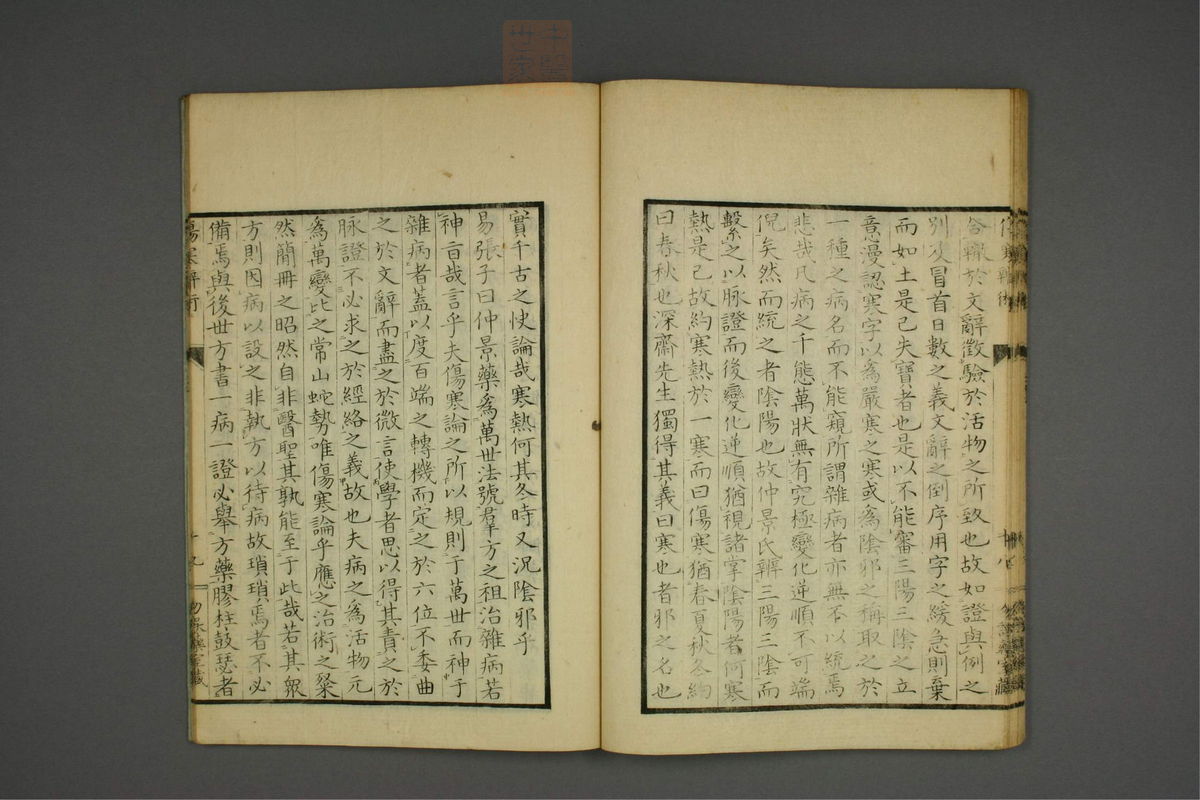 咎轍於文辭徵驗於活物之所致也故如證與例之
別及冒首日數之義文辭之倒序用字之緩急則棄
而如土是已夫寶者也是以不能審三陽三陰之立
意漫認寒字以爲嚴寒之寒或爲陰邪之稱取之於
一種之病名而不能窺所謂雜病者亦無不以統焉
悲哉凡病之千態萬狀無有究極變化逆順不可端
倪矣然而統之者陰陽也故仲景氏辨三陽三陰而
繫之以脉證而後變化逆順猶視諸掌陰陽者何寒
熱是已故約寒熱於一寒而曰傷寒猶春夏秋冬約
曰春秋也深齋先生獨得其義曰寒也者邪之名也
實千古之快論哉寒熱何其冬時又況陰邪乎
易張子曰仲景藥爲萬世法號羣方之祖治雜病若
神旨哉言乎夫傷寒論之所以規則于萬世而神于
雜病者蓋以度百端之轉機而定之於六位不委曲
之於文辭而盡之於微言使學者思以得其責之於
脉證不必求之於經絡之義故也夫病之爲活物元
爲萬變比之常山蛇勢唯傷寒論乎應之治術之粲
然簡冊之昭然自非醫聖其孰能至于此哉若其衆
方則因病以設之非執方以待病故瑣瑣焉者不必
備焉與後世方書一病一證必舉方藥膠柱鼓瑟者
傷寒辨術
十九